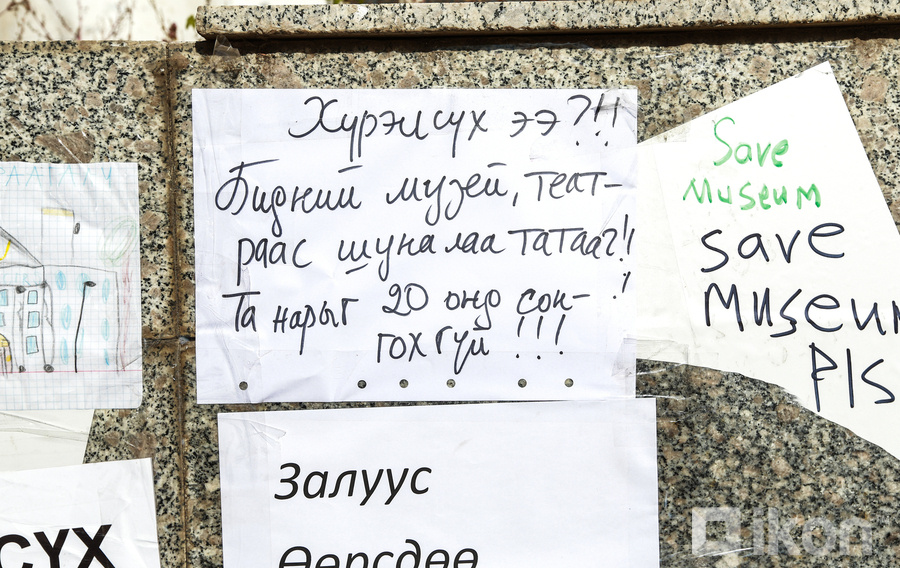 Хүрэлсүх ээ?!!
Бидний музей, теат-
раас шуналаа татааг!!
Та нарыг 20 онд сон-!
гохгүй !!!
Save
Museum
save
Museum
Pls
Залуус
Өөрсдөө
СҮХ
ikon